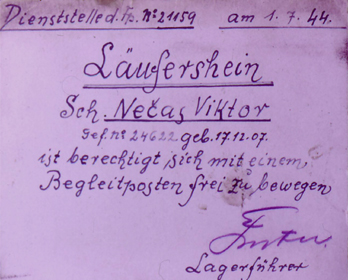 Dienststelle d. Fp. No 21159 am 1.7.44.
Läufershein
Sch. Nečas Viktor
Gef. No 24622 geb. 17.12.07.
ist berechtigt sich mit einem
Begleitposten frei zu bewegen
Lagerführer